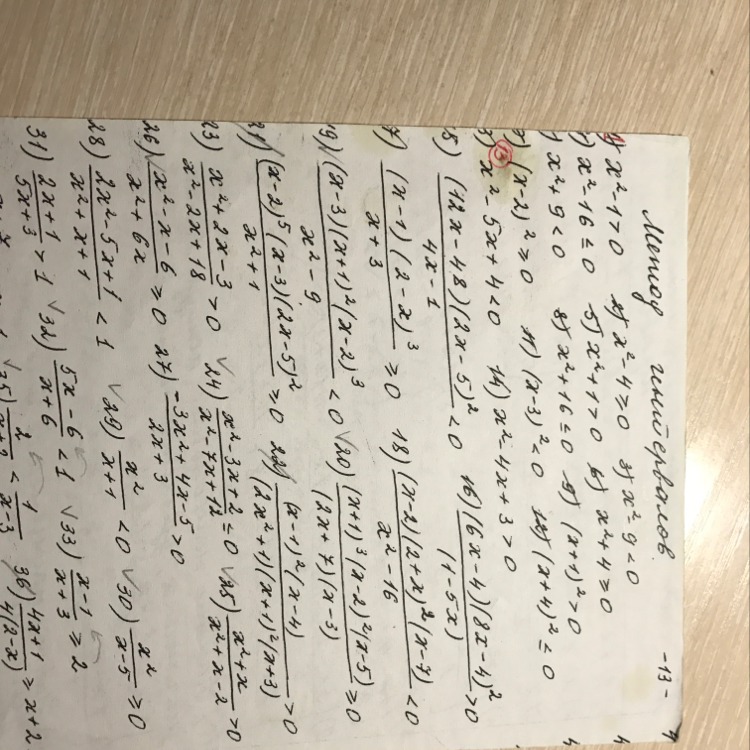 Метод интервалов -13-
x²-1>0 2) x²-4≥0 3) x²-9<0
x²-16≤0 5) x²+1>0 6) x²+4≥0
x²+9<0 8) x²+16≤0 9) (x+1)²>0
(x-2)²≥0 11) (x-3)²<0 12) (x+4)²≤0
13 x²-5x+4<0 14) x²-4x+3>0
5) (12x-48)(2x-5)²/4x-1 <0 16) (6x-4)(8x-4)²/(1-5x) >0
7) (x-1)(2-x)³/x+3 ≥0 18) (x-2)(2+x)²(x-7)/x²-16 <0
19) (x-3)(x+1)²(x-2)³/x²-9 <0 √20) (x+1)³(x-2)²(x-5)/(2x+7)(x-3) ≥0
21) (x-2)⁵(x-3)(2x-5)²/x²+1 ≥0 22) (x-1)²(x-4)/(2x²+1)(x+1)²(x+3) >0
23) x²+2x-3/x²-2x+18 >0 √24) x²-3x+2/x²-7x+12 ≤0 √25) x²+x/x²+x-2 >0
26) x²-x-6/x²+6x ≥0 27) -3x²+4x-5/2x+3 >0
28) 2x²-5x+1/x²+x+1 <1 √29) x²/x+1 <0 √30) x²/x-5 ≥0
31) 2x+1/5x+3 >1 √32) 5x-6/x+6 <1 √33) x-1/x+3 ≥2
36) 4x+1/4(2-x) ≥x+2